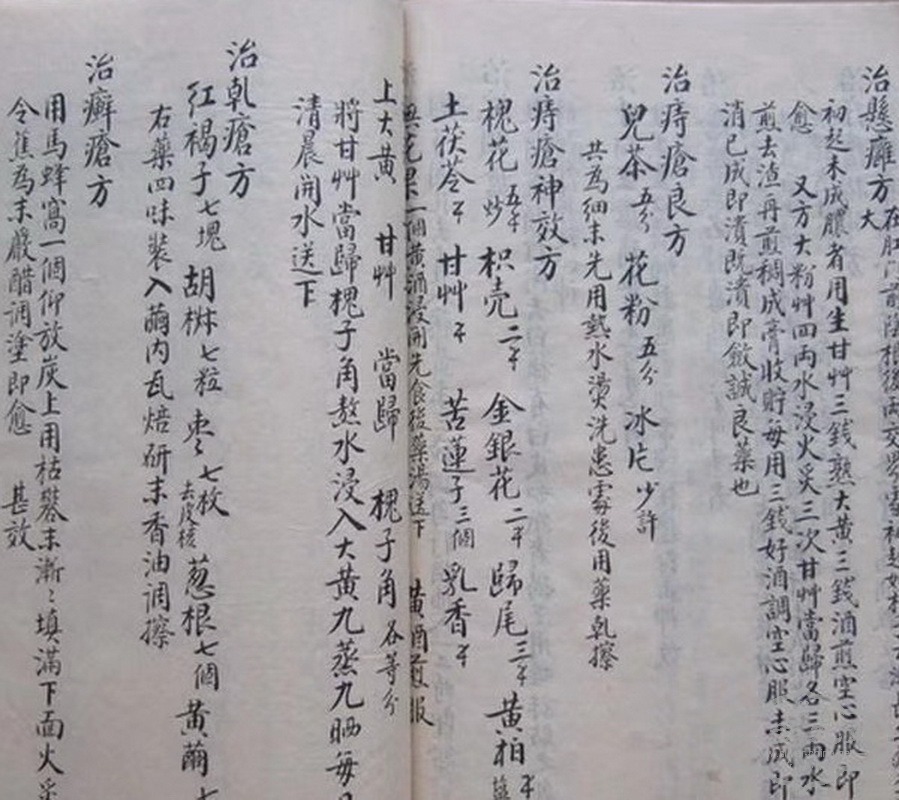 治懸癰方
初起未成膿者用生甘艸三錢熟大黃三錢酒煎空心服即
愈　又方大粉艸四両水浸火炙三次甘艸當歸各三両水
煎去渣再煎稠成膏收貯每用三錢好酒調空心服未成即
消已成即潰既潰即斂誠良藥也
治痔瘡良方
兒茶五分 花粉五分 冰片少許
共為細末先用熱水燙洗患處後用藥乾擦
治痔瘡神效方
槐花炒 枳壳 金銀花 歸尾 黃柏
土茯苓 甘艸 苦蓮子三個 乳香
無花果一個黃酒浸開先食後藥湯送下 黃酒煎服
上大黃 甘艸 當歸 槐子角各等分
將甘艸當歸槐子角熬水浸入大黃九蒸九晒每
清晨開水送下
治乾瘡方
紅褐子七塊 胡椒七粒 枣七枚去皮核 葱根七個 黃繭
右藥四味裝入繭内瓦焙研末香油調擦
治癬瘡方
用馬蜂窩一個仰放炭上用枯礬末漸〻填滿下面火
令焦為末嚴醋調塗即愈 甚效